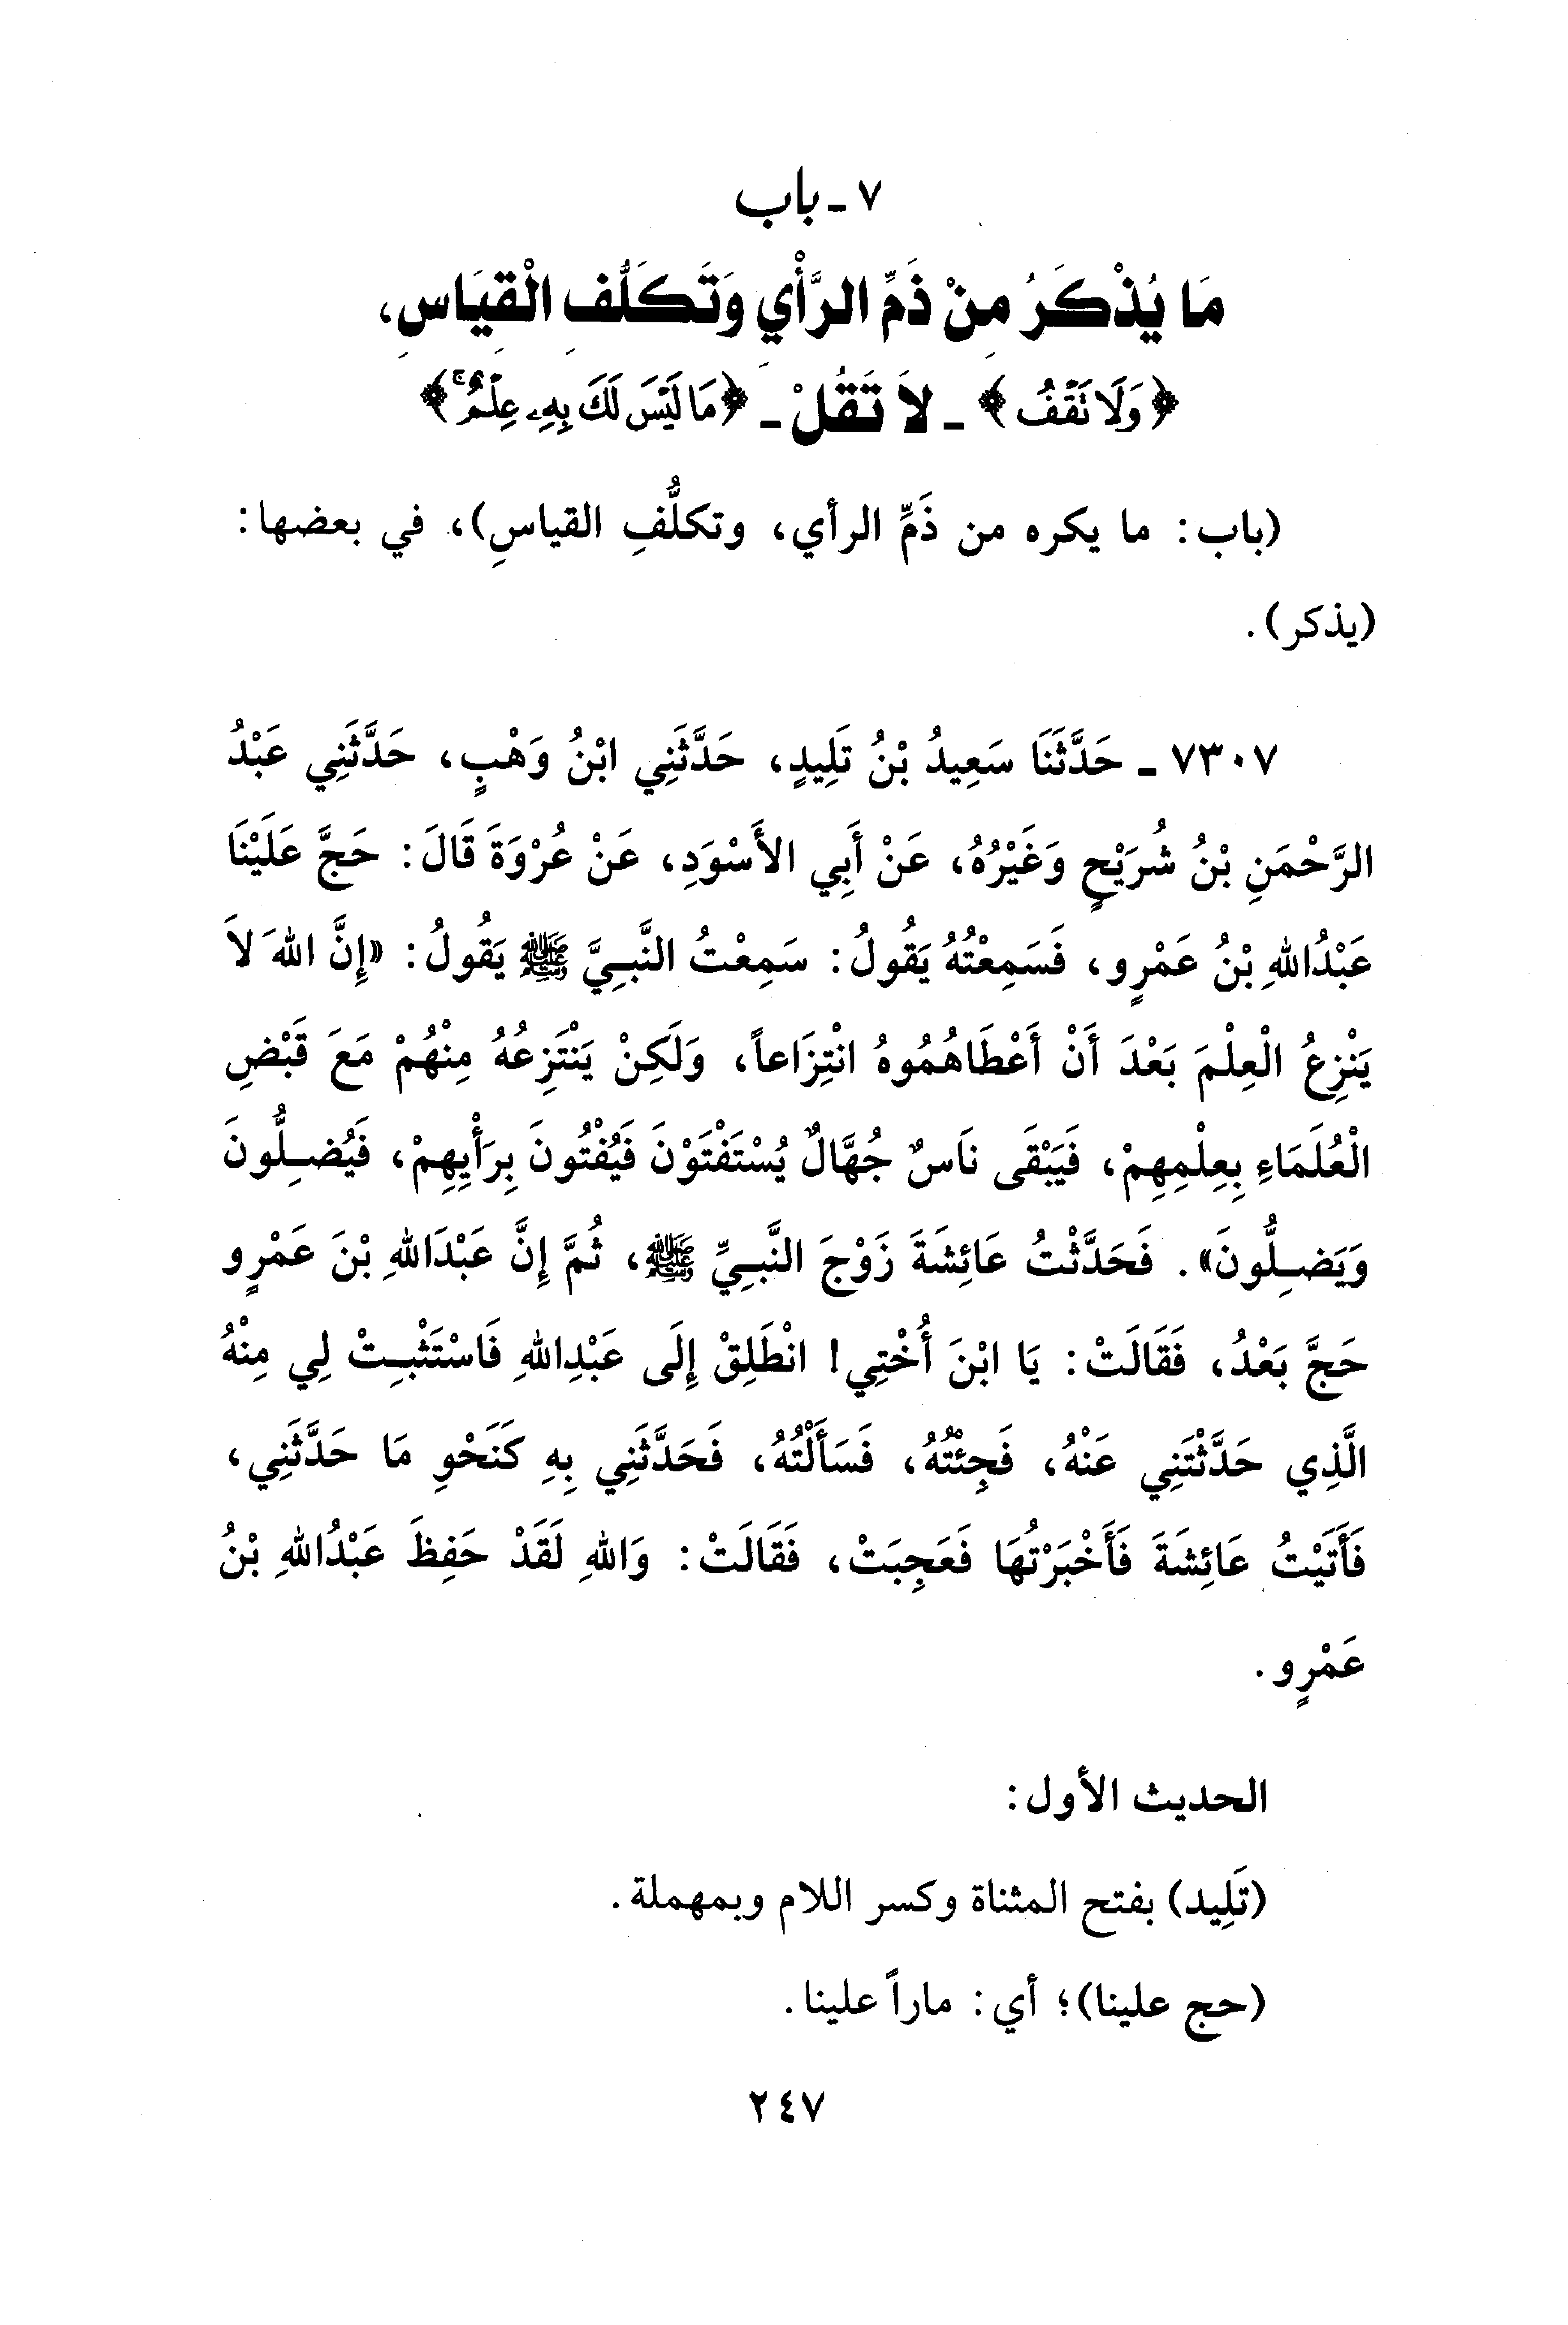 ٧ ـ باب
مَا يُذْكَرُ مِنْ ذَمِّ الرَّأْيِ وَتَكَلُّفِ الْقِيَاسِ،
﴿وَلَا نَقْفُ﴾ ـ لاَ تَقُلْ ـ ﴿مَا لَيْسَ لَكَ بِهِۦ عِلْمٌ ۚ﴾
(باب: ما يكره من ذَمِّ الرأي، وتكلُّفِ القياسِ)، في بعضها:
(يذكر).
٧٣٠٧ ـ حَدَّثَنَا سَعِيدُ بْنُ تَلِيدٍ، حَدَّثَنِي ابْنُ وَهْبٍ، حَدَّثَنِي عَبْدُ
الرَّحْمَنِ بْنُ شُرَيْحٍ وَغَيْرُهُ، عَنْ أَبِي الأَسْوَدِ، عَنْ عُرْوَةَ قَالَ: حَجَّ عَلَيْنَا
عَبْدُاللهِ بْنُ عَمْرٍو، فَسَمِعْتُهُ يَقُولُ: سَمِعْتُ النَّبِيَّ ﷺ يَقُولُ: «إِنَّ اللهَ لاَ
يَنْزِعُ الْعِلْمَ بَعْدَ أَنْ أَعْطَاهُمُوهُ انْتِزَاعاً، وَلَكِنْ يَنْتَزِعُهُ مِنْهُمْ مَعَ قَبْضِ
الْعُلَمَاءِ بِعِلْمِهِمْ، فَيَبْقَى نَاسٌ جُهَّالٌ يُسْتَفْتَوْنَ فَيُفْتُونَ بِرَأْيِهِمْ، فَيُضِلُّونَ
وَيَضِلُّونَ». فَحَدَّثْتُ عَائِشَةَ زَوْجَ النَّبِيِّ ﷺ، ثُمَّ إِنَّ عَبْدَاللهِ بْنَ عَمْرٍو
حَجَّ بَعْدُ، فَقَالَتْ: يَا ابْنَ أُخْتِي! انْطَلِقْ إِلَى عَبْدِاللهِ فَاسْتَثْبِتْ لِي مِنْهُ
الَّذِي حَدَّثْتَنِي عَنْهُ، فَجِئْتُهُ، فَسَأَلْتُهُ، فَحَدَّثَنِي بِهِ كَنَحْوِ مَا حَدَّثَنِي،
فَأَتَيْتُ عَائِشَةَ فَأَخْبَرْتُهَا فَعَجِبَتْ، فَقَالَتْ: وَاللهِ لَقَدْ حَفِظَ عَبْدُاللهِ بْنُ
عَمْرٍو.
الحديث الأول:
(تَلِيد) بفتح المثناة وكسر اللام وبمهملة.
(حج علينا)؛ أي: ماراً علينا.
٢٤٧